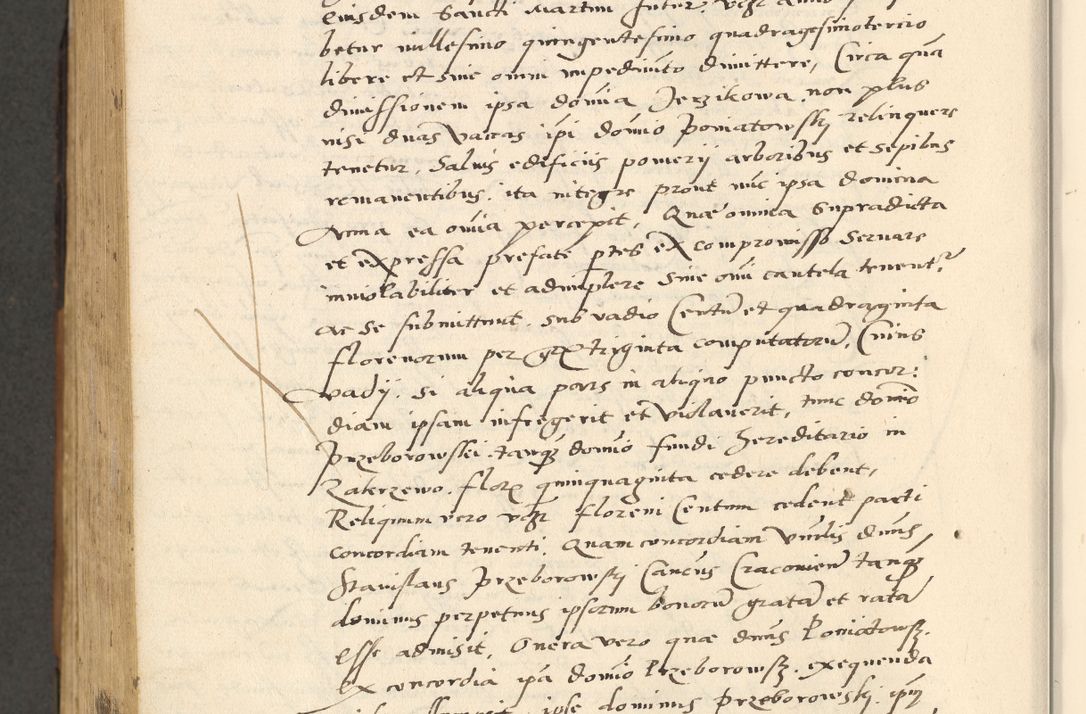 Eiusdem Sancti Martini
betur millesimo quingentesimo quadragesimotercio
libere et sine omni impedim̄to dimittere, Circa quā
dimissionem ipsa domīa Jerzikowa non plus
nisi duas vaccas ip̄i domīo Poniatowskj relinquere
tenetur, Saluis edificiis pomerij arboribus et Sepibus
remanentibus, ita integre prout nūc ipsa domina
Anna ea om̄ia percepit, Quæ omnia Supradicta
et expressa prefate p̄tes ex compromisso Seruare
inuiolabiliter et adimplere Sine om̄i cautela tenent̄
ac se submittunt, sub vadio Centū et quadraginta
florenorum per gr triginta computatorū, Cuius
vadij, Si aliqua pars in aliquo puncto concor:
diam ipsam infregerit et violauerit, tunc domīo
Przeborowski tanq̄ domīo fundi hereditario in
Zakrzewo, flor quinquaginta cedere debent,
Reliquum vero vz̄ floreni Centum cedent parti
concordiam tenenti, Quam concordiam Vn̄lis dn̄us
Stanislaus Przeborowskj Can̄cus Cracouien̄ tanq̄
dominus perpetuus ipsorum bonorū gratā et ratā
Esse admisit, Onera vero quæ dn̄us Poniatowsk.
Ex concordia ip̄a domīo Przeborowsk. exequenda
ipse dominus Przeborowski, ip̄i